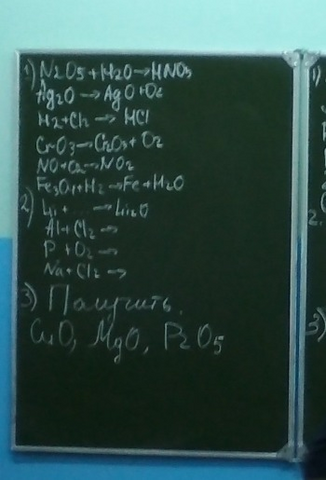 1) N2O5 + H2O → HNO3
Ag2O → AgO + O2
H2 + Cl2 → HCl
CrO3 → Cr2O3 + O2
NO + O2 → NO2
Fe3O4 + H2 → Fe + H2O
2) Li + ... → Li2O
Al + Cl2 →
P + O2 →
Na + Cl2 →
3) Получить.
CuO, MgO, P2O5
1)
2.
3)